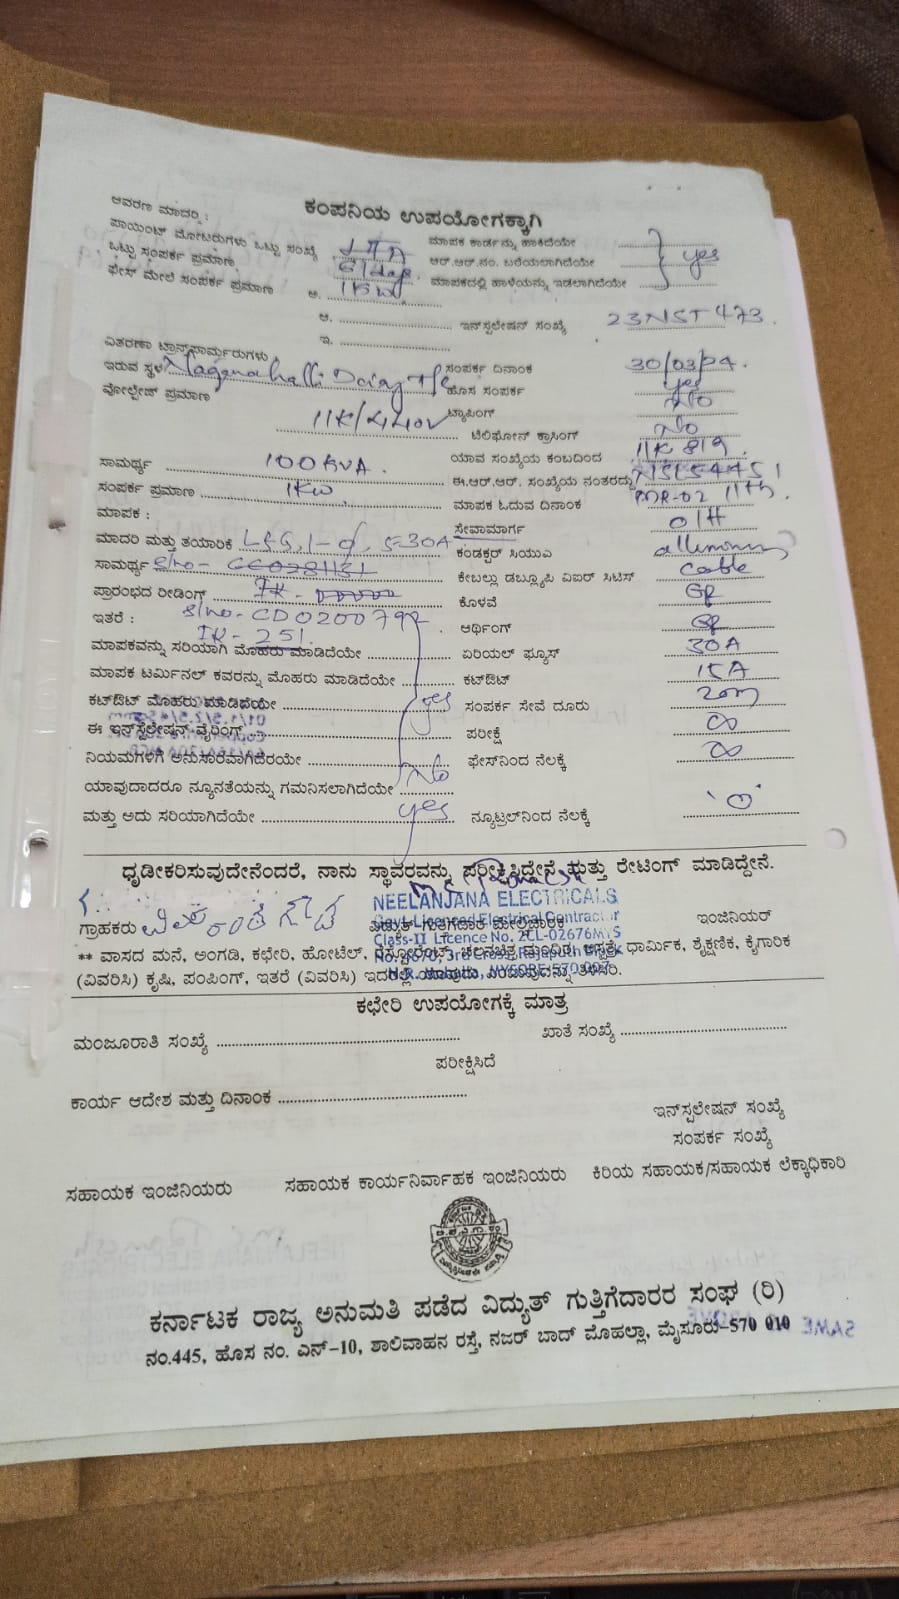 ಕಂಪನಿಯ ಉಪಯೋಗಕ್ಕಾಗಿ
ಆವರಣ ಮಾದರಿ :
ಪಾಯಿಂಟ್ ಮೋಟರುಗಳು ಒಟ್ಟು ಸಂಖ್ಯೆ
ಮಾಪಕ ಕಾರ್ಡನ್ನು ಹಾಕಿದೆಯೇ
ಒಟ್ಟು ಸಂಪರ್ಕ ಪ್ರಮಾಣ
ಆರ್.ಆರ್.ನಂ. ಬರೆಯಲಾಗಿದೆಯೇ yes
ಫೇಸ್ ಮೇಲೆ ಸಂಪರ್ಕ ಪ್ರಮಾಣ ಅ. 1KW
ಮಾಪಕದಲ್ಲಿ ಹಾಳೆಯನ್ನು ಇಡಲಾಗಿದೆಯೇ
ಆ. ಇನ್‌ಸ್ಟಲೇಷನ್ ಸಂಖ್ಯೆ 23NST473
ಇ.
ವಿತರಣಾ ಟ್ರಾನ್ಸ್‌ಫಾರ್ಮರುಗಳು
ಇರುವ ಸ್ಥಳ ಸಂಪರ್ಕ ದಿನಾಂಕ 30/03/24.
ವೋಲ್ಟೇಜ್ ಪ್ರಮಾಣ ಹೊಸ ಸಂಪರ್ಕ yes
ಟ್ಯಾಪಿಂಗ್ No
ಟೆಲಿಫೋನ್ ಕ್ರಾಸಿಂಗ್ No
ಸಾಮರ್ಥ್ಯ 100KVA. ಯಾವ ಸಂಖ್ಯೆಯ ಕಂಬದಿಂದ
ಸಂಪರ್ಕ ಪ್ರಮಾಣ 1KW. ಈ.ಆರ್.ಆರ್. ಸಂಖ್ಯೆಯ ನಂತರದ್ದು
ಮಾಪಕ : ಮಾಪಕ ಓದುವ ದಿನಾಂಕ MR-02 11th.
ಸೇವಾಮಾರ್ಗ O/H
ಮಾದರಿ ಮತ್ತು ತಯಾರಿಕೆ ಕಂಡಕ್ಟರ್ ಸಿಯುಎ
ಸಾಮರ್ಥ್ಯ S/no- ಕೇಬಲ್ಲು ಡಬ್ಲ್ಯೂಪಿ ವಿಐರ್ ಸಿಟಿಸ್ Cable
ಪ್ರಾರಂಭದ ರೀಡಿಂಗ್ ಕೊಳವೆ
ಇತರೆ : S/no- ಅರ್ಥಿಂಗ್
IR - 251.
ಮಾಪಕವನ್ನು ಸರಿಯಾಗಿ ಮೊಹರು ಮಾಡಿದೆಯೇ ಏರಿಯಲ್ ಫ್ಯೂಸ್ 30A
ಮಾಪಕ ಟರ್ಮಿನಲ್ ಕವರನ್ನು ಮೊಹರು ಮಾಡಿದೆಯೇ ಕಟ್‌ಔಟ್ 15A
ಕಟ್‌ಔಟ್ ಮೊಹರು ಮಾಡಿದೆಯೇ yes ಸಂಪರ್ಕ ಸೇವೆ ದೂರು 20m
ಈ ಇನ್‌ಸ್ಟಲೇಷನ್ ವೈರಿಂಗ್ ಪರೀಕ್ಷೆ ∞
ನಿಯಮಗಳಿಗೆ ಅನುಸಾರವಾಗಿದೆರಯೇ ಫೇಸ್‌ನಿಂದ ನೆಲಕ್ಕೆ ∞
ಯಾವುದಾದರೂ ನ್ಯೂನತೆಯನ್ನು ಗಮನಿಸಲಾಗಿದೆಯೇ No
ಮತ್ತು ಅದು ಸರಿಯಾಗಿದೆಯೇ yes ನ್ಯೂಟ್ರಲ್‌ನಿಂದ ನೆಲಕ್ಕೆ '0'
ಧೃಡೀಕರಿಸುವುದೇನೆಂದರೆ, ನಾನು ಸ್ಥಾವರವನ್ನು ಪರೀಕ್ಷಿಸಿದ್ದೇನೆ ಮತ್ತು ರೇಟಿಂಗ್ ಮಾಡಿದ್ದೇನೆ.
NEELANJANA ELECTRICALS
Govt. Licenced Electrical Contractor
ಗ್ರಾಹಕರು ವಿದ್ಯುತ್ ಗುತ್ತಿಗೆದಾರ ಮೇಲ್ವಿಚಾರಕ ಇಂಜಿನಿಯರ್
Class-II Licence No. 2CL-02676MYS
** ವಾಸದ ಮನೆ, ಅಂಗಡಿ, ಕಛೇರಿ, ಹೋಟೆಲ್, ಧಾರ್ಮಿಕ, ಶೈಕ್ಷಣಿಕ, ಕೈಗಾರಿಕ
(ವಿವರಿಸಿ) ಕೃಷಿ, ಪಂಪಿಂಗ್, ಇತರೆ (ವಿವರಿಸಿ) ಇದರಲ್ಲಿ ಯಾವುದು ತಿಳಿಸಿರಿ.
ಕಛೇರಿ ಉಪಯೋಗಕ್ಕೆ ಮಾತ್ರ
ಮಂಜೂರಾತಿ ಸಂಖ್ಯೆ ಖಾತೆ ಸಂಖ್ಯೆ
ಪರೀಕ್ಷಿಸಿದೆ
ಕಾರ್ಯ ಆದೇಶ ಮತ್ತು ದಿನಾಂಕ
ಇನ್‌ಸ್ಟಲೇಷನ್ ಸಂಖ್ಯೆ
ಸಂಪರ್ಕ ಸಂಖ್ಯೆ
ಸಹಾಯಕ ಇಂಜಿನಿಯರು ಸಹಾಯಕ ಕಾರ್ಯನಿರ್ವಾಹಕ ಇಂಜಿನಿಯರು ಕಿರಿಯ ಸಹಾಯಕ/ಸಹಾಯಕ ಲೆಕ್ಕಾಧಿಕಾರಿ
ಕರ್ನಾಟಕ ರಾಜ್ಯ ಅನುಮತಿ ಪಡೆದ ವಿದ್ಯುತ್ ಗುತ್ತಿಗೆದಾರರ ಸಂಘ (ರಿ)
ನಂ.445, ಹೊಸ ನಂ. ಎನ್-10, ಶಾಲಿವಾಹನ ರಸ್ತೆ, ನಜರ್ ಬಾದ್ ಮೊಹಲ್ಲಾ, ಮೈಸೂರು-570 010